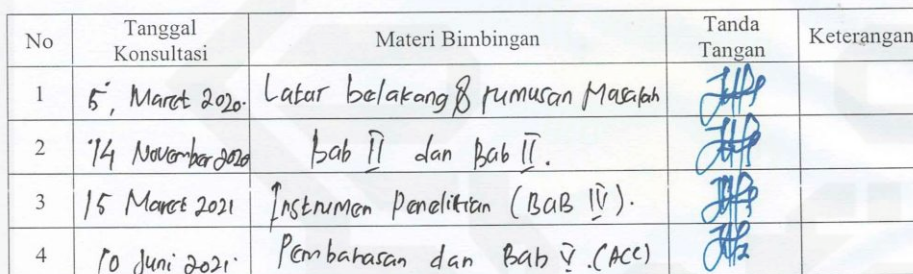 No Tanggal Konsultasi Materi Bimbingan Tanda Tangan Keterangan
1 5, Maret 2020. Latar belakang & rumusan Masalah
2 14 November 2020 Bab II dan Bab II.
3 15 Maret 2021 Instrumen Penelitian (BAB IV).
4 10 Juni 2021. Pembahasan dan Bab V. (ACC)